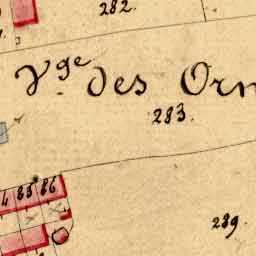 282.
Vge des Orm
283.
4 85 86
289.